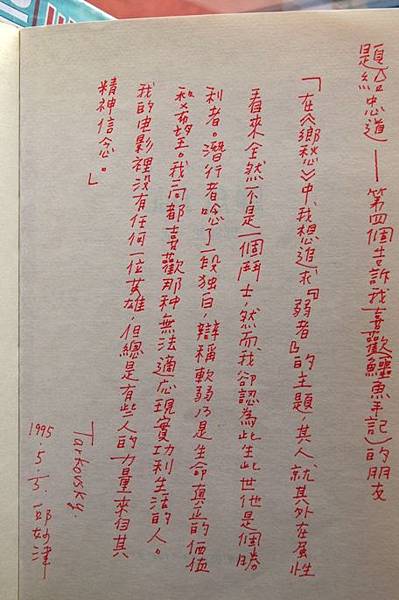 題給忠道——第四個告訴我喜歡《鱷魚手記》的朋友
「在《鄉愁》中,我想追求『弱者』的主題,其人就其外在屬性
看來全然不是一個鬥士,然而我卻認為此生此世他是個勝
利者。潛行者唸了一段独白,辯稱軟弱乃是生命真正的価值
和希望。我向都喜歡那种無法適应現實功利生活的人。
我的电影裡没有任何一位英雄,但總是有些人的力量來自其
精神信念。」
Tarkovsky.
1995.5.5.邱妙津